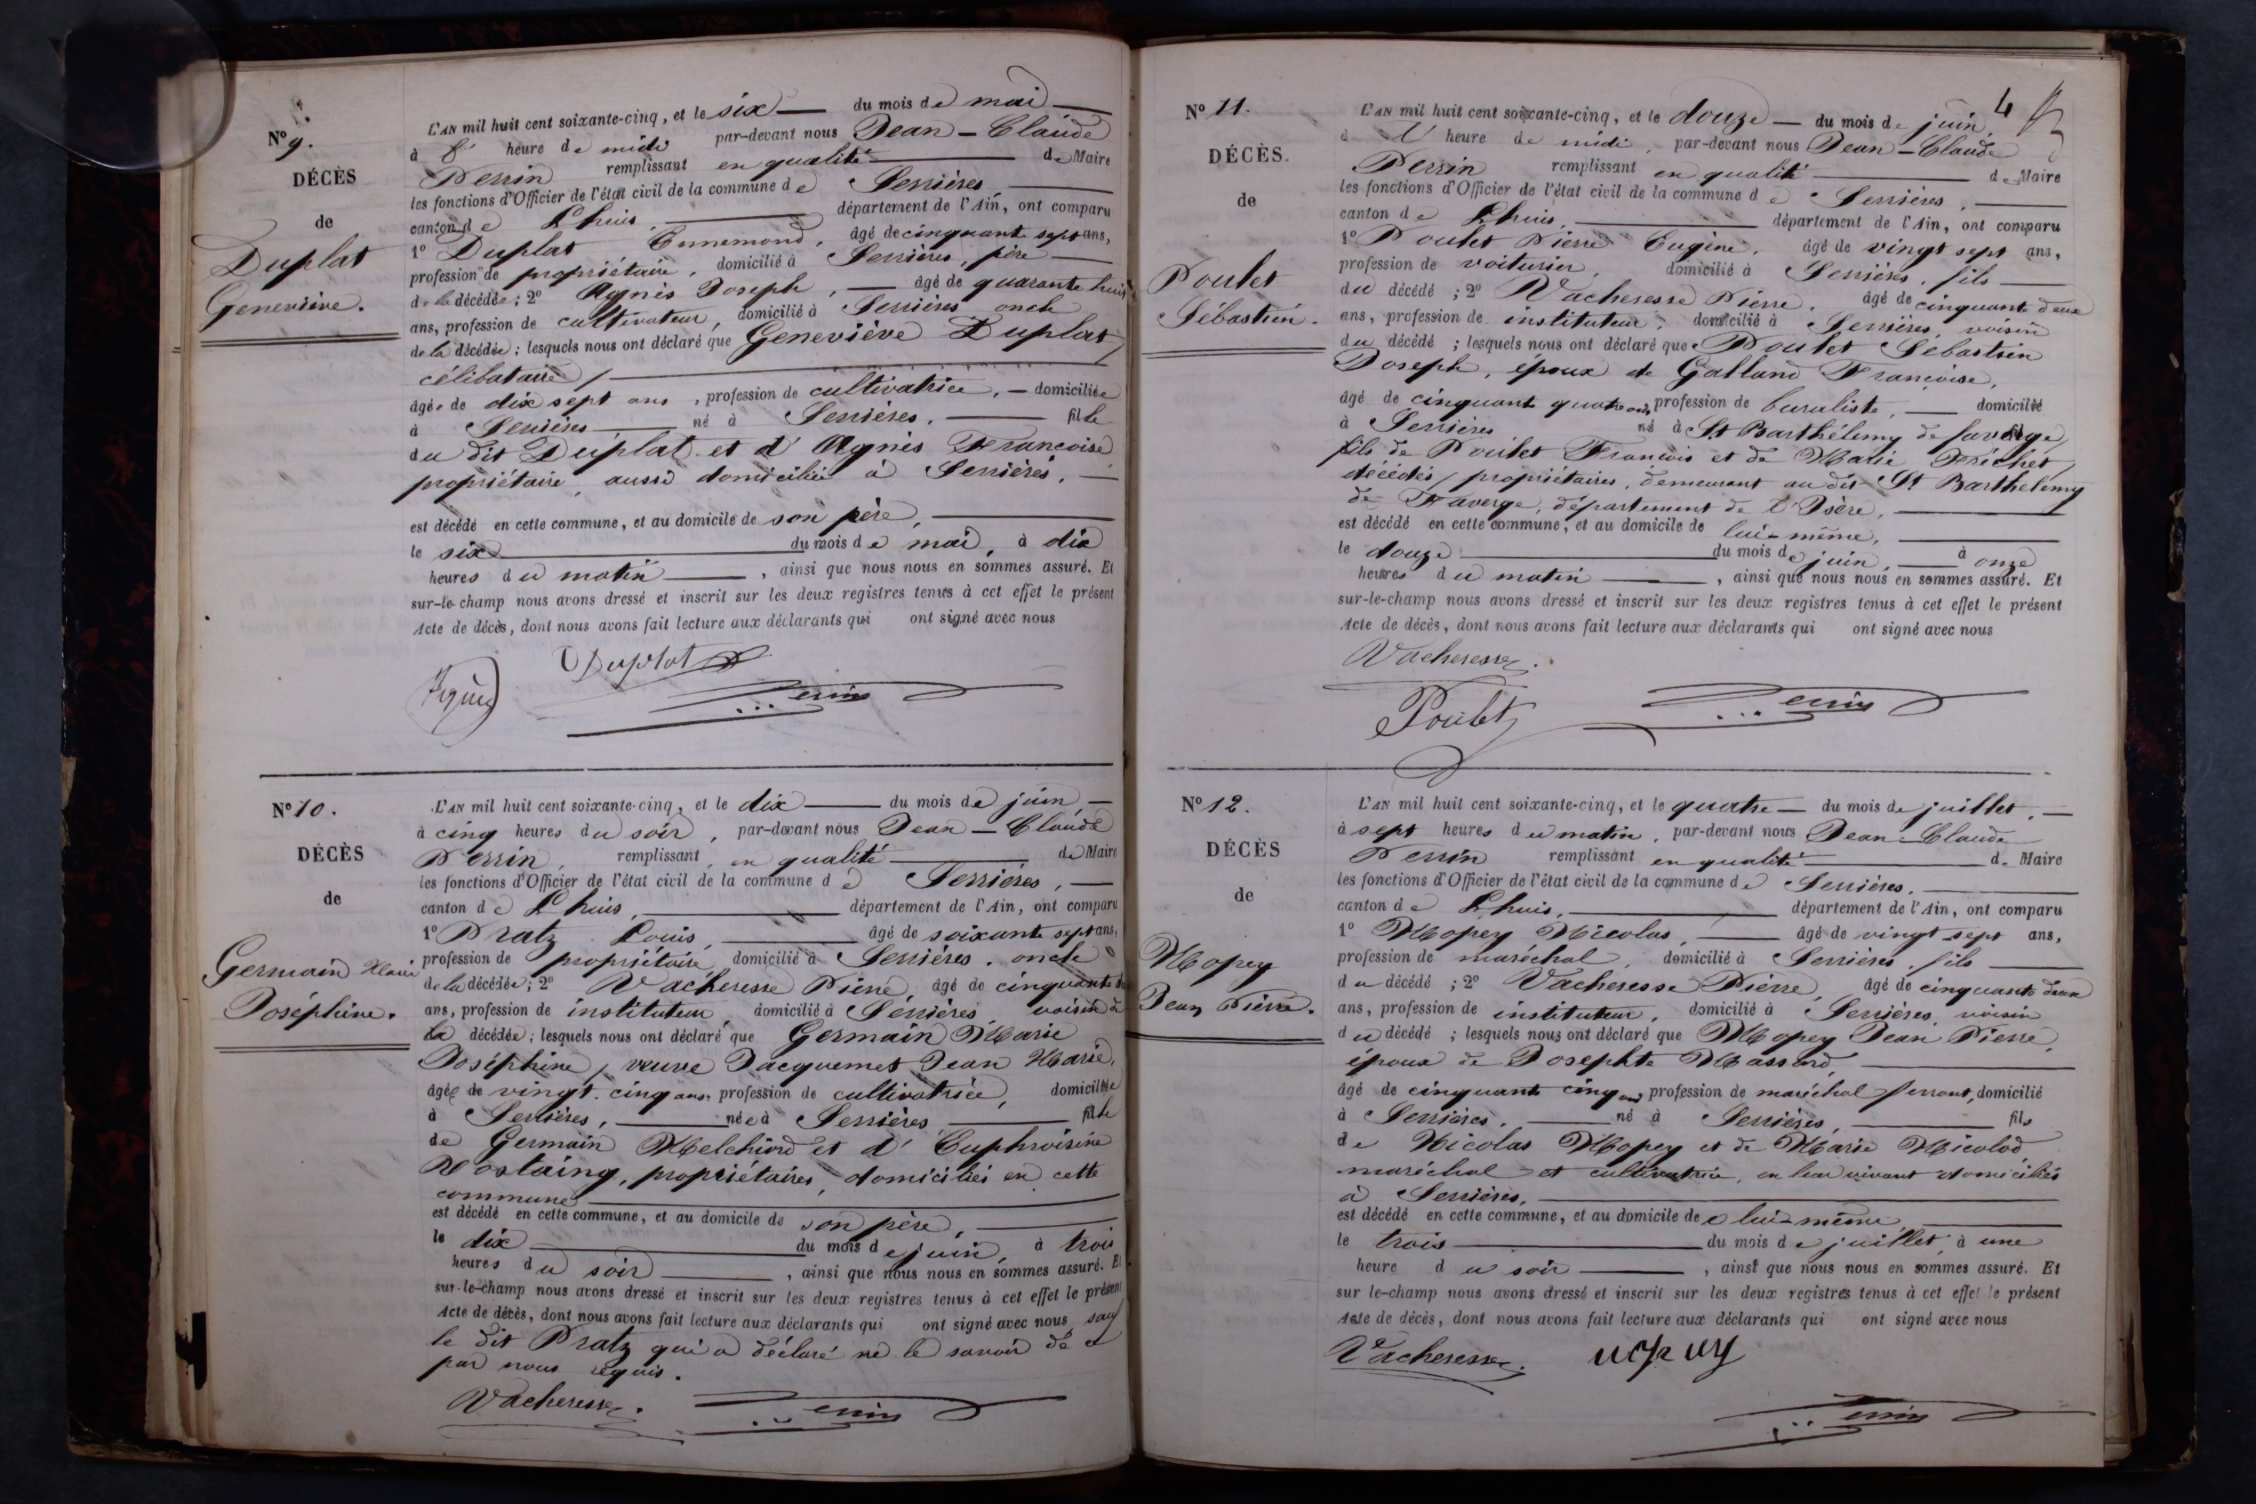 N° 9.
DÉCÈS
de
Duplat
Geneviève.
L'AN mil huit cent soixante-cinq, et le six du mois de mai
à l' heure de midi par-devant nous Jean-Claude
Perrin remplissant en qualité de Maire
les fonctions d'Officier de l'état civil de la commune de Serrières,
canton de Lhuis, département de l'Ain, ont comparu
1° Duplat Ennemond, âgé de cinquante sept ans,
profession de propriétaire, domicilié à Serrières, père
de la décédée; 2° Agnès Joseph, âgé de quarante huit
ans, profession de cultivateur, domicilié à Serrières oncle
de la décédée; lesquels nous ont déclaré que Geneviève Duplat,
célibataire,
âgée de dix sept ans, profession de cultivatrice, domiciliée
à Serrières né à Serrières. fille
du dit Duplat et d'Agnès Françoise
propriétaire, aussi domiciliée à Serrières,
est décédé en cette commune, et au domicile de son père,
le six du mois de mai, à dix
heures du matin, ainsi que nous nous en sommes assuré. Et
sur-le-champ nous avons dressé et inscrit sur les deux registres tenus à cet effet le présent
Acte de décès, dont nous avons fait lecture aux déclarants qui ont signé avec nous
Duplat
Agnès
Perrin
N° 10.
DÉCÈS
de
Germain Marie
Joséphine.
L'AN mil huit cent soixante-cinq, et le dix du mois de juin,
à cinq heures du soir, par-devant nous Jean-Claude
Perrin, remplissant, en qualité de Maire
les fonctions d'Officier de l'état civil de la commune de Serrières,
canton de Lhuis, département de l'Ain, ont comparu
1° Pratz Louis, âgé de soixante sept ans,
profession de propriétaire domicilié à Serrières. oncle
de la décédée; 2° Vacheresse Pierre âgé de cinquante
ans, profession de instituteur domicilié à Serrières voisin de
la décédée; lesquels nous ont déclaré que Germain Marie
Joséphine, veuve Jacquemet Jean Marie,
âgée de vingt-cinq ans, profession de cultivatrice, domiciliée
à Serrières, née à Serrières fille
de Germain Melchior et d'Euphroisine
Rostaing, propriétaires, domiciliés en cette
commune
est décédé en cette commune, et au domicile de son père,
le dix du mois de juin, à trois
heures du soir, ainsi que nous nous en sommes assuré. Et
sur-le-champ nous avons dressé et inscrit sur les deux registres tenus à cet effet le présent
Acte de décès, dont nous avons fait lecture aux déclarants qui ont signé avec nous, sauf
le dit Pratz qui a déclaré ne le savoir de ce
par nous requis.
Vacheresse. Perrin
4
N° 11.
DÉCÈS.
de
Poulet
Sébastien.
L'AN mil huit cent soixante-cinq, et le douze du mois de juin,
à l' heure de midi, par-devant nous Jean-Claude
Perrin remplissant en qualité de Maire
les fonctions d'Officier de l'état civil de la commune de Serrières,
canton de Lhuis, département de l'Ain, ont comparu
1° Poulet Pierre Eugène, âgé de vingt sept ans,
profession de voiturier, domicilié à Serrières, fils
du décédé; 2° Vacheresse Pierre, âgé de cinquante deux
ans, profession de instituteur, domicilié à Serrières, voisin
du décédé; lesquels nous ont déclaré que Poulet Sébastien
Joseph, époux de Galland Françoise,
âgé de cinquante quatre ans, profession de buraliste, domicilié
à Serrières né à St Barthélemy de faverge
fils de Poulet François et de Marie Fréchet,
décédés, propriétaires, demeurant au dit St Barthelemy
de Faverge, département de l'Isère,
est décédé en cette commune, et au domicile de lui-même,
le douze du mois de juin, à onze
heures du matin, ainsi que nous nous en sommes assuré. Et
sur-le-champ nous avons dressé et inscrit sur les deux registres tenus à cet effet le présent
Acte de décès, dont nous avons fait lecture aux déclarants qui ont signé avec nous
Vacheresse.
Poulet
Perrin
N° 12.
DÉCÈS
de
Mopey
Jean Pierre.
L'AN mil huit cent soixante-cinq, et le quatre du mois de juillet,
à sept heures du matin, par-devant nous Jean-Claude
Perrin remplissant en qualité de Maire
les fonctions d'Officier de l'état civil de la commune de Serrières,
canton de Lhuis, département de l'Ain, ont comparu
1° Mopey Nicolas, âgé de vingt-sept ans,
profession de maréchal, domicilié à Serrières, fils
du décédé; 2° Vacheresse Pierre, âgé de cinquante deux
ans, profession de instituteur, domicilié à Serrières, voisin
du décédé; lesquels nous ont déclaré que Mopey Jean Pierre,
époux de Josephte Massard,
âgé de cinquante cinq ans profession de maréchal ferrant, domicilié
à Serrières, né à Serrières, fils
de Nicolas Mopey et de Marie Nicolod
maréchal et cultivatrice, en leur vivant domiciliés
à Serrières,
est décédé en cette commune, et au domicile de lui-même
le trois du mois de juillet, à une
heure du soir, ainsi que nous nous en sommes assuré. Et
sur le-champ nous avons dressé et inscrit sur les deux registres tenus à cet effet le présent
Acte de décès, dont nous avons fait lecture aux déclarants qui ont signé avec nous
Vacheresse. mopey
Perrin